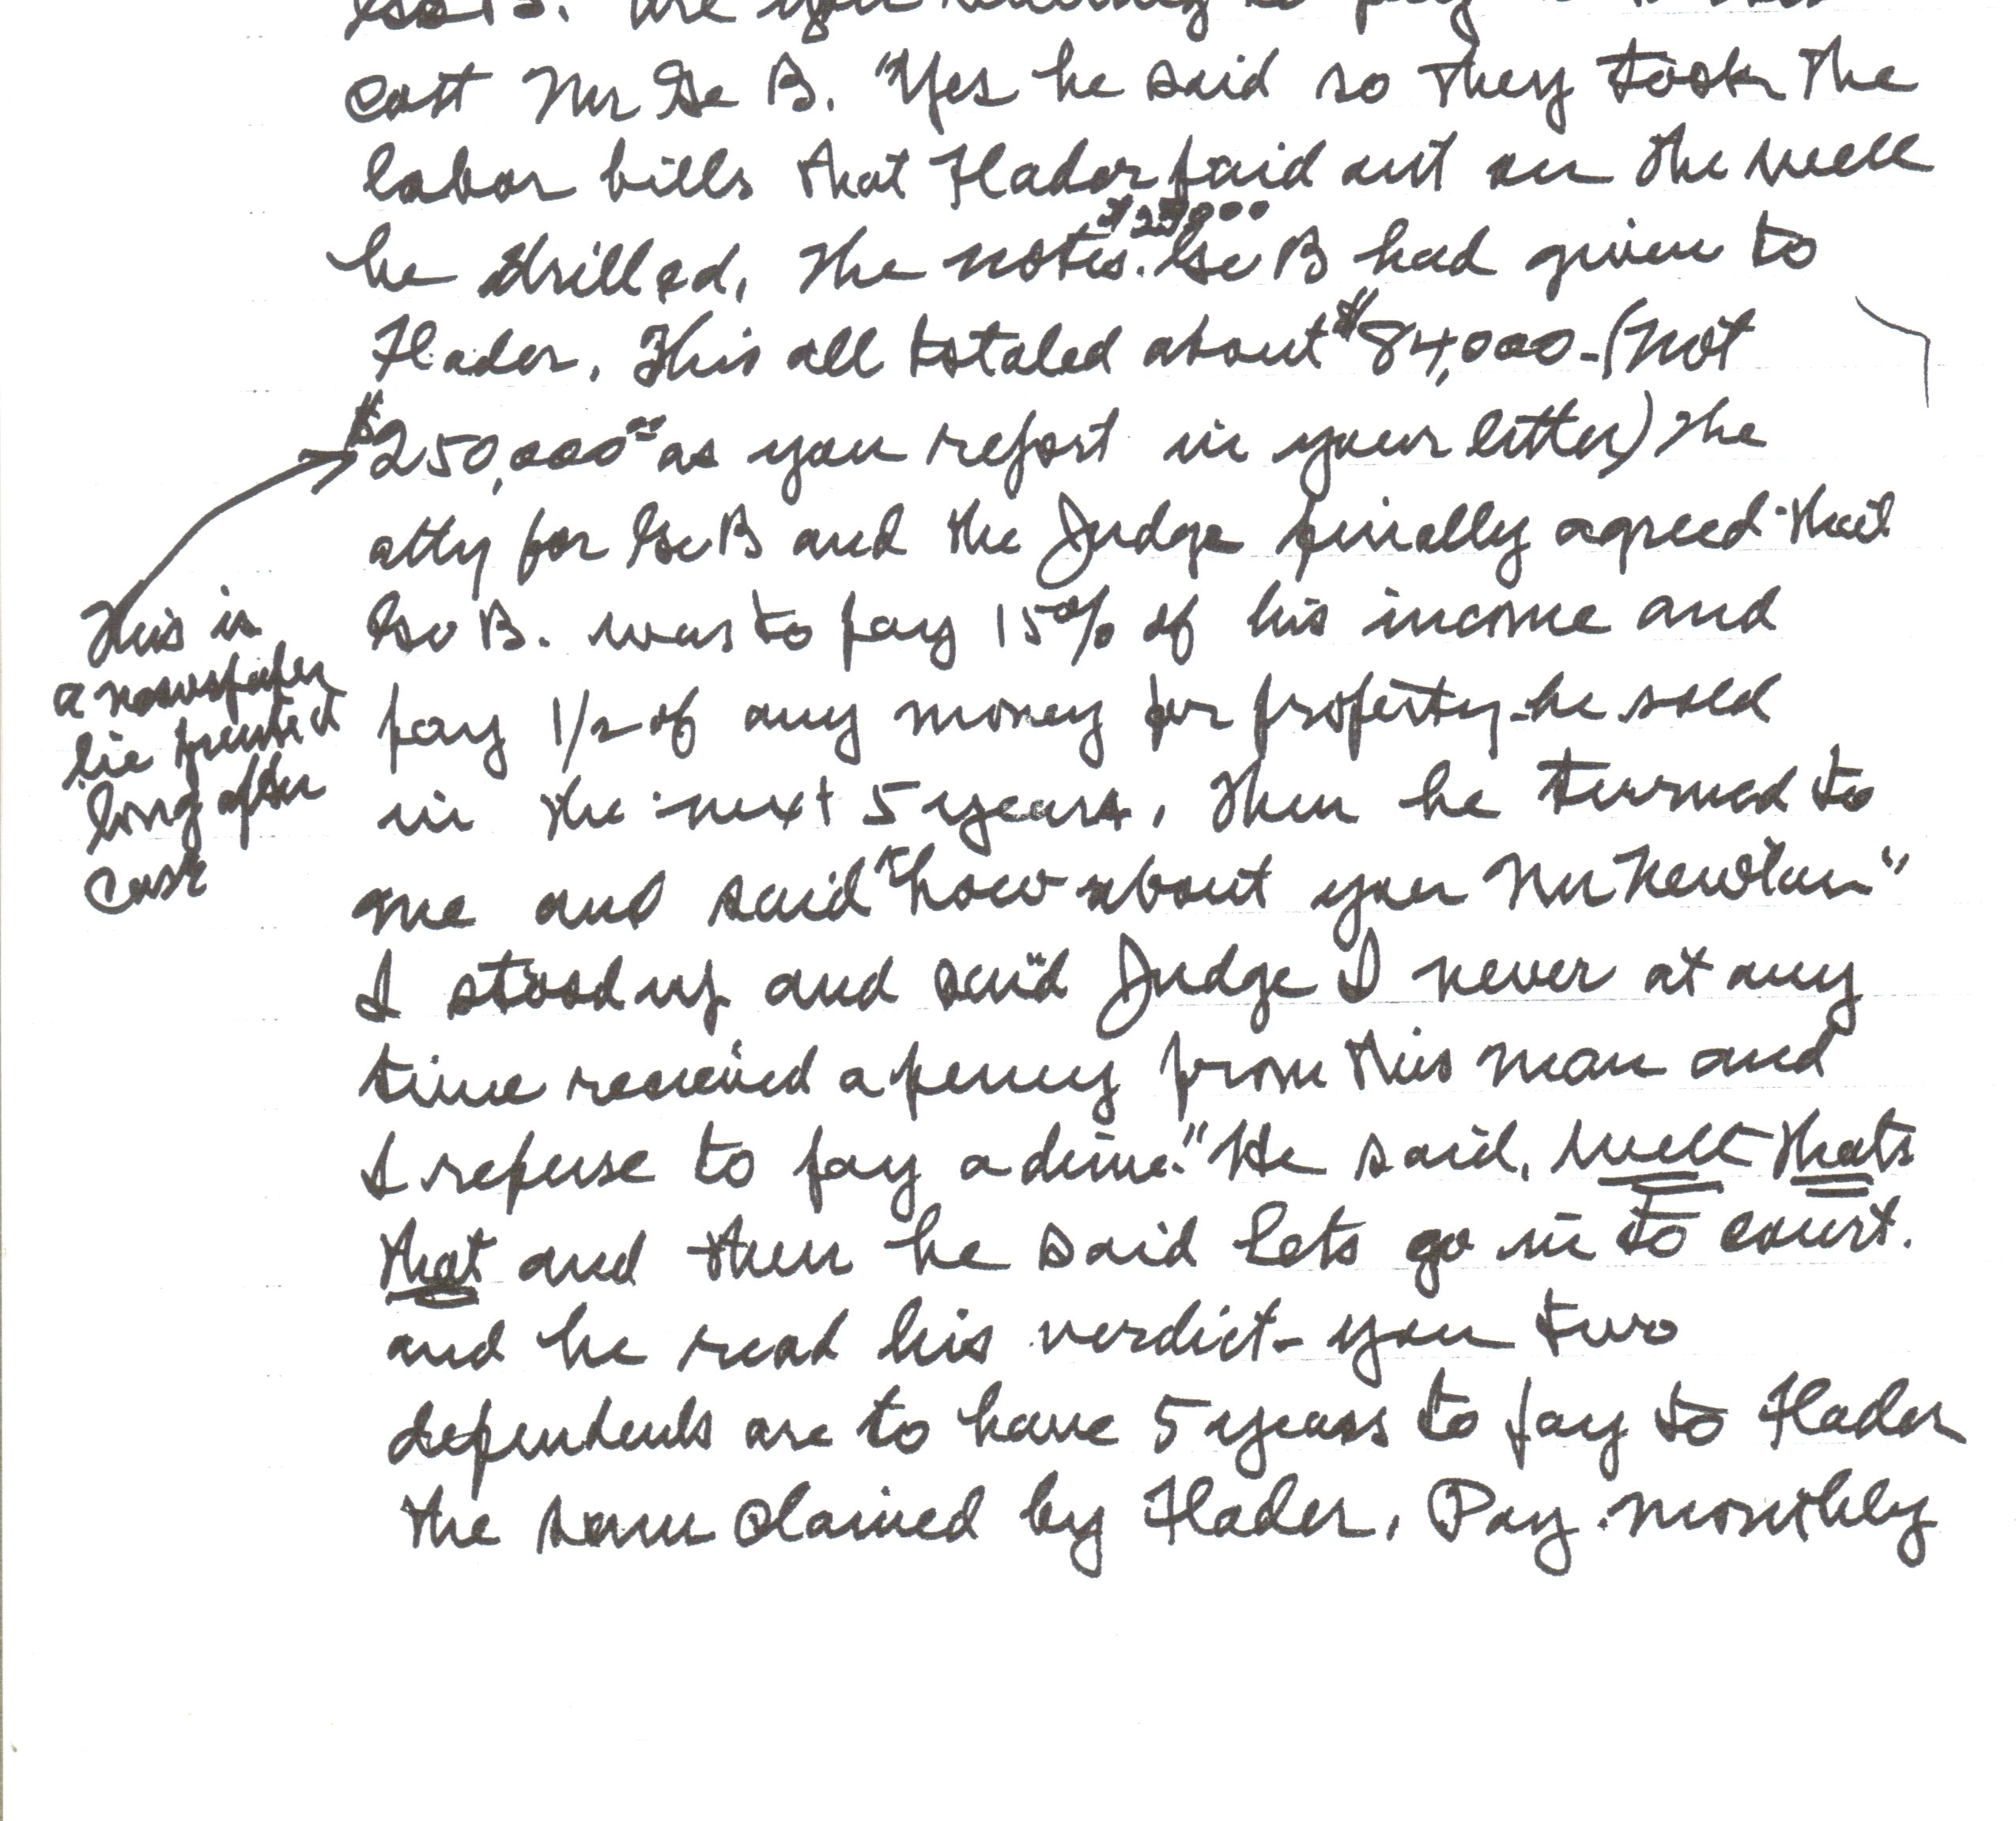 cost Mr Ge B. "Yes he said so they took the
labor bills that Flader paid out on the well
he drilled, the notes. Ge B had given to
Flader. This all totaled about $84,000 - (not
$250,000⁰⁰ as you report in your letter) The
atty for Ge B and the Judge finally agreed that
Ge B. was to pay 15% of his income and
pay 1/2 of any money for property he sold
in the next 5 years, Then he turned to
me and said "how about you Mr Newton"
I stood up and said "Judge I never at any
time received a penny from this man and
I refuse to pay a dime." He said, well thats
that and then he said lets go in to court.
and he read his verdict - you two
dependents are to have 5 years to pay to Flader
the sum claimed by Flader. Pay monthly
This is
a newspaper
lie printed
long after
case